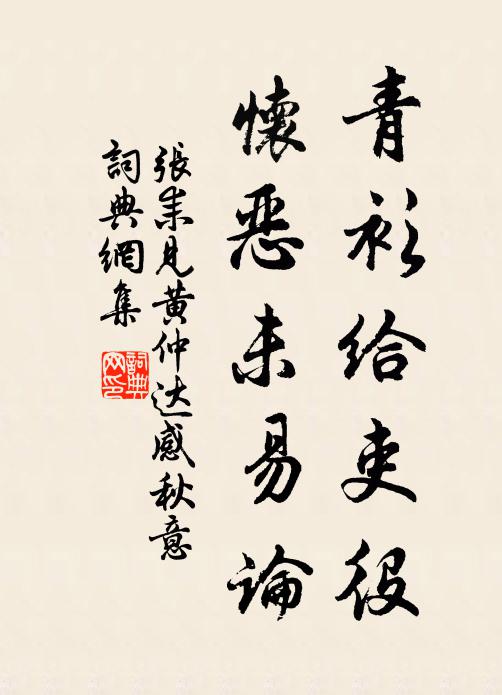 青衫给吏役
懷惡未易論
張耒見黄仲达感秋意
詞典網集
詞典網印